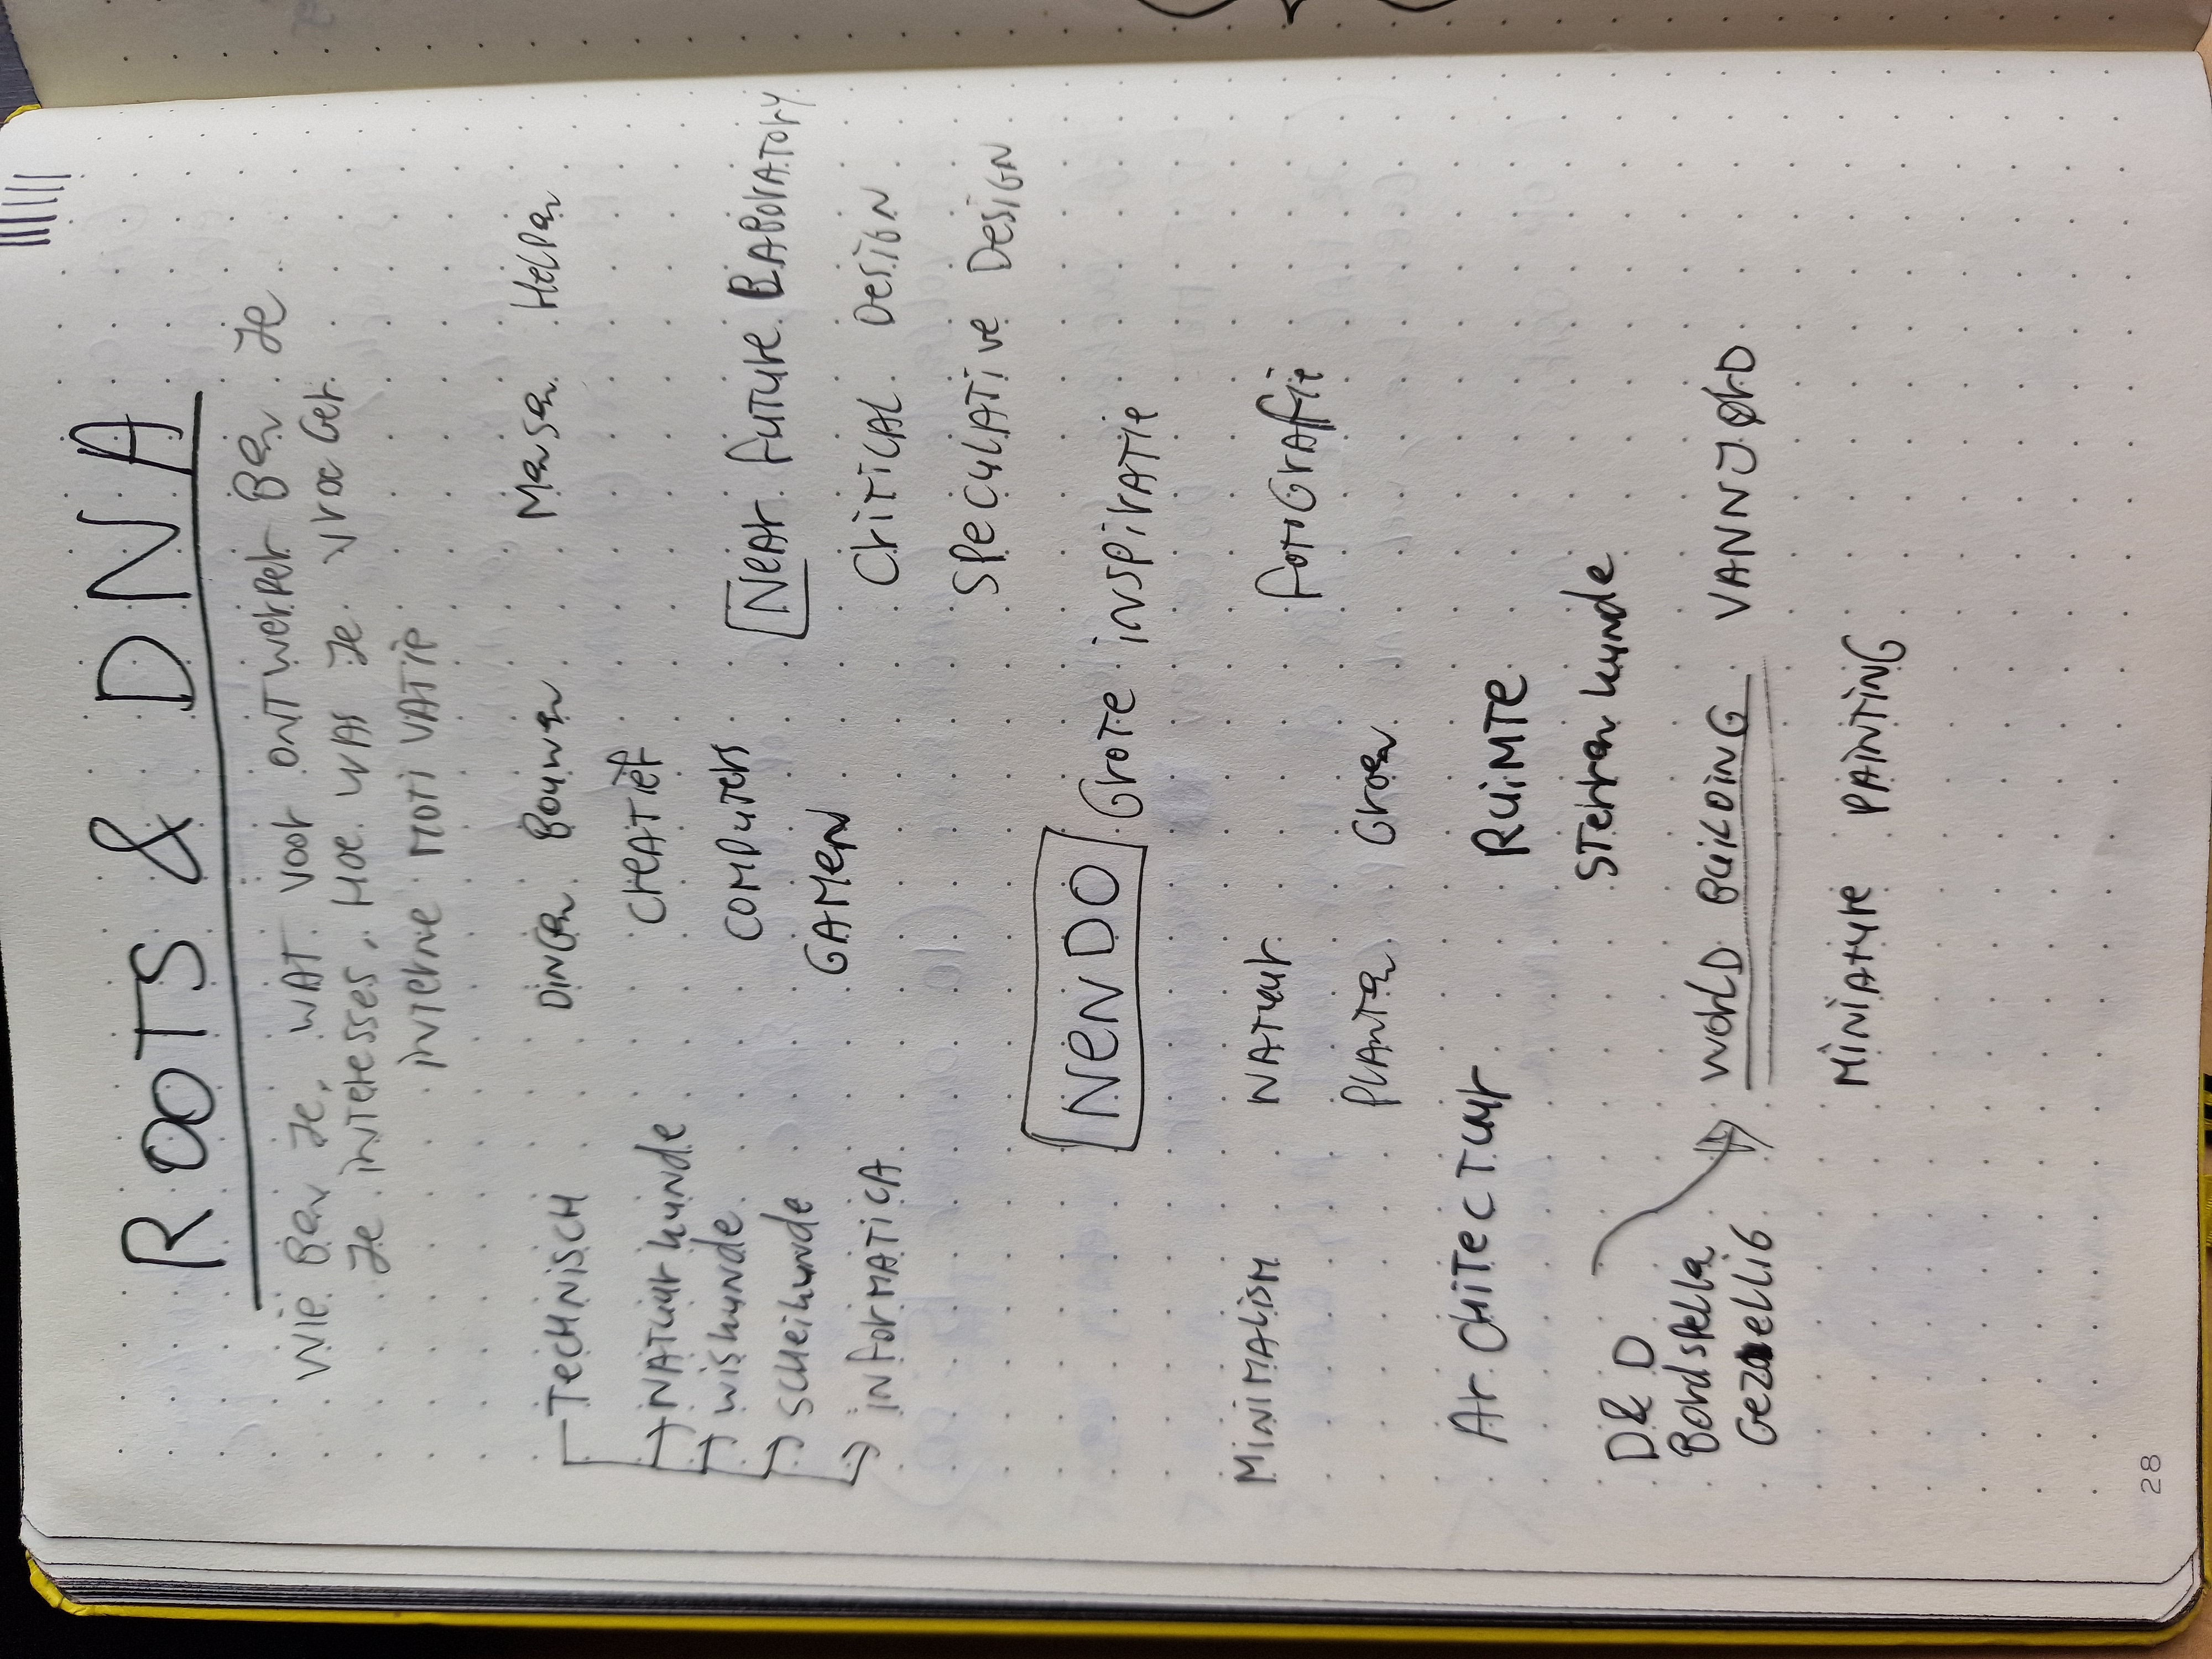 ROOTS & DNA
Wie Ben Je, WAT voor ontwerper Ben Je
Je interesses, Hoe was Je vroeger
Je interne motivatie
Technisch
Natuurkunde
wiskunde
scheikunde
informatica
Dingen Bouwen
Creatief
Computers
Gamen
Mensen Helpen
Near future Laboratory
Critical Design
Speculative Design
NENDO Grote inspiratie
Minimalism Natuur fotografie
Planten Groen
Architectuur Ruimte
Sterrenkunde
D&D
Bordspellen
Gezellig
World Building VANNJØRD
Miniature Painting
28